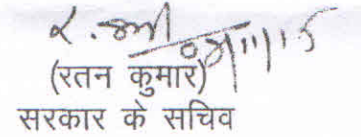 (रतन कुमार)
सरकार के सचिव